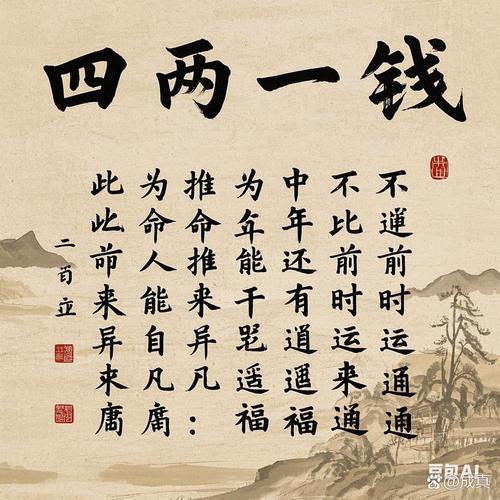 四两一钱
不前时运通通
不比前时运来通
中年还有道福
为年能干福
推命推来异凡：
为命人能自凡庸
此此前来异来庸
二首立
豆包AI
@成真